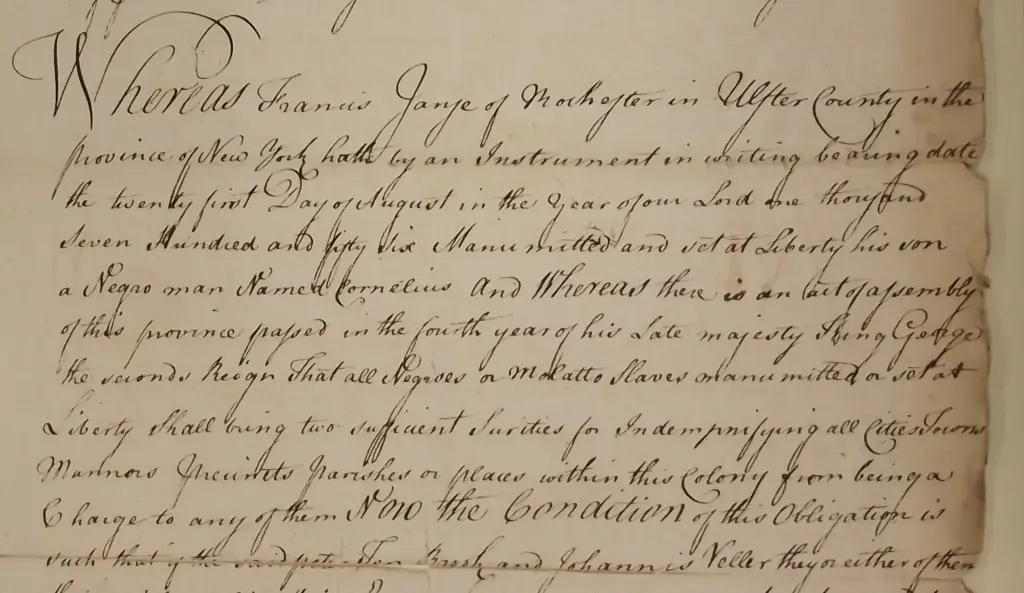 Whereas Francis Janse of Rochester in Ulster County in the
province of New York hath by an Instrument in writing bearing date
the twenty first Day of August in the Year of our Lord one thousand
Seven Hundred and fifty six Manumitted and set at Liberty his son
a Negro man Named Cornelius And Whereas there is an act of assembly
of this province passed in the fourth year of his Late majesty King George
the seconds Reign That all Negroes or Molatto Slaves manumitted or set at
Liberty Shall bring two sufficient Surities for Indempnifying all Cities Towns
Mannors Precincts Parishes or places within this Colony from being a
Charge to any of them Now the Condition of this Obligation is
such that if the said Ten Broek and Johannis Veller they or either of them